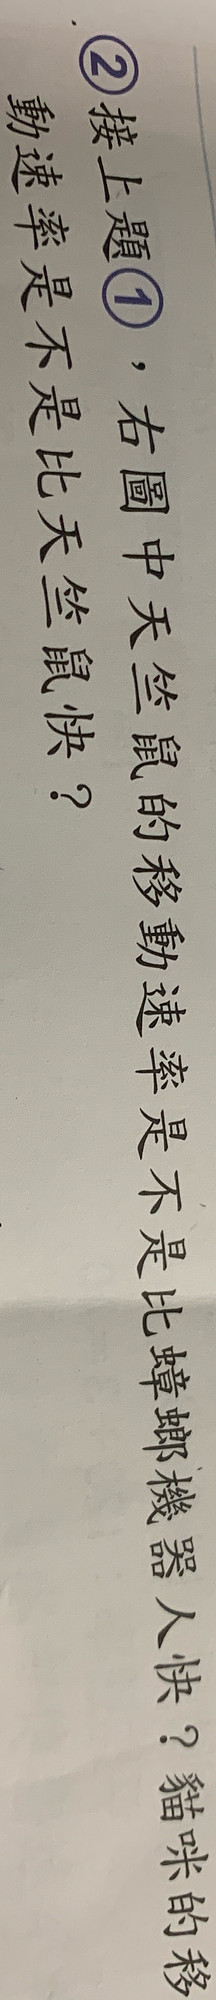 ②接上題①，右圖中天竺鼠的移動速率是不是比蟑螂機器人快？貓咪的移
動速率是不是比天竺鼠快？